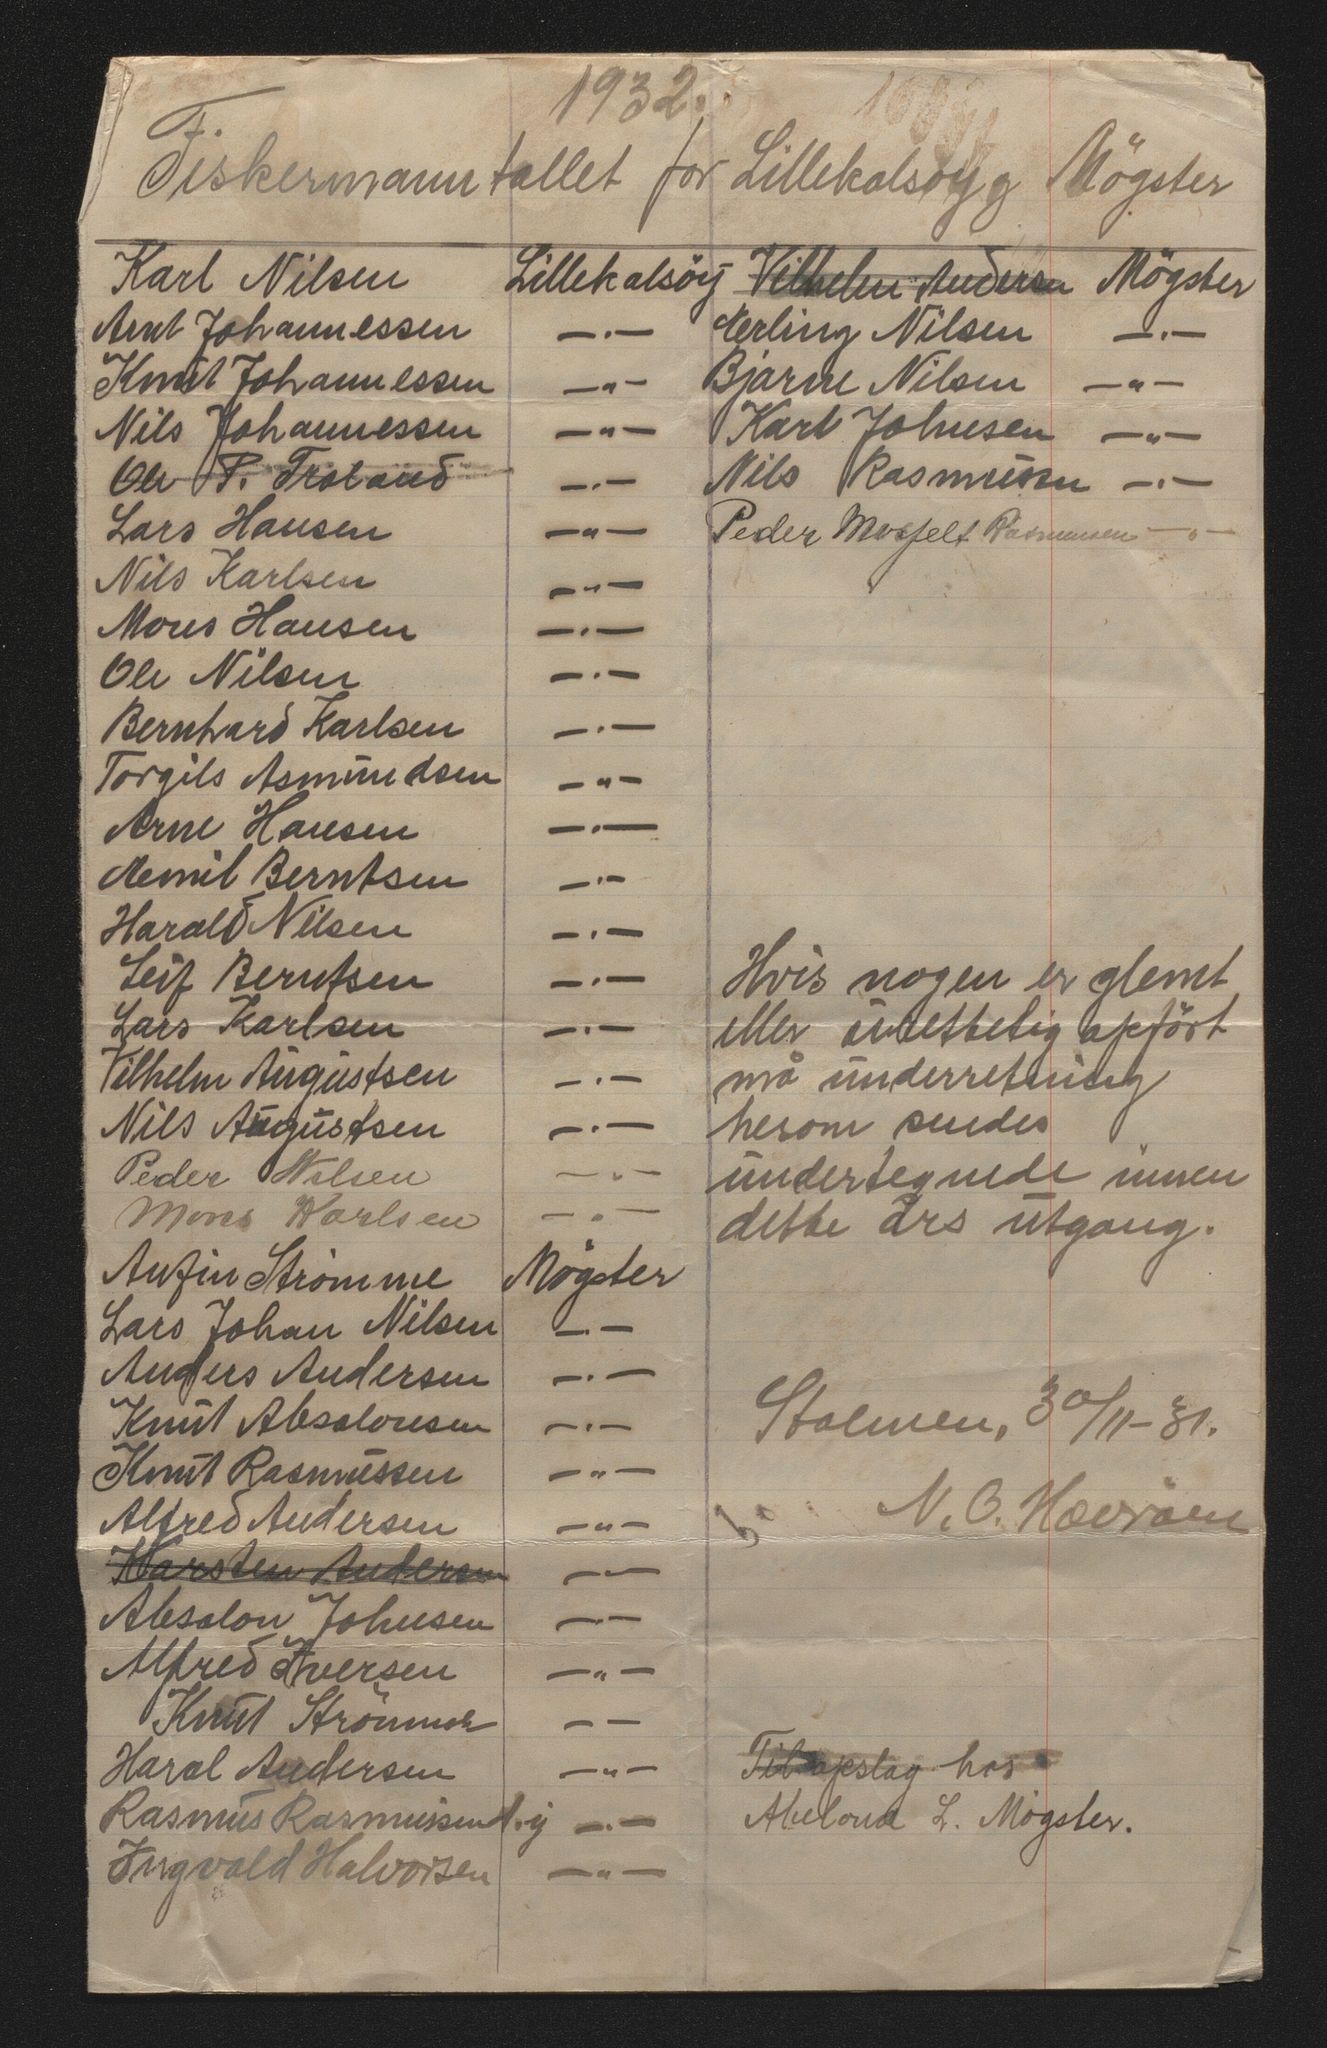 1932.
Fiskermanntallet for Lillekalsöy g Mögster
Karl Nilsen Lillekalsöy
Arnt Johannessen —„—
Knut Johannessen —„—
Nils Johannessen —„—
Ole P. Troland —„—
Lars Hansen —„—
Nils Karlsen —„—
Mons Hansen —„—
Ole Nilsen —„—
Bernhard Karlsen —„—
Torgils Asmundsen —„—
Arne Hansen —„—
Aemil Berntsen —„—
Harald Nilsen —„—
Leif Berntsen —„—
Lars Karlsen —„—
Vilhelm Augustsen —„—
Nils Augustsen —„—
Peder Nilsen —„—
Mons Karlsen —„—
Anfin Strömme Mögster
Lars Johan Nilsen —„—
Anders Andersen —„—
Knut Absalonsen —„—
Knut Rasmussen —„—
Alfred Andersen —„—
Karsten Andersen —„—
Absalon Johnsen —„—
Alfred Iversen —„—
Knut Strömme — —
Haral Andersen —„—
Rasmus Rasmussen d.y —„—
Ingvald Halvorsen —„—
Vilhelm Andersen Mögster
Aerling Nilsen —„—
Bjarne Nilsen —„—
Karl Johnsen —„—
Nils Rasmussen —„—
Peder Rasmussen —„—
Hvis nogen er glemt
eller urettelig opfört
må underretning
herom sendes
undertegnede innen
dette års utgang.
Stolmen, 30/11-31.
N. O. Hevröen
Til opslag hos
Abelone L. Mögster.